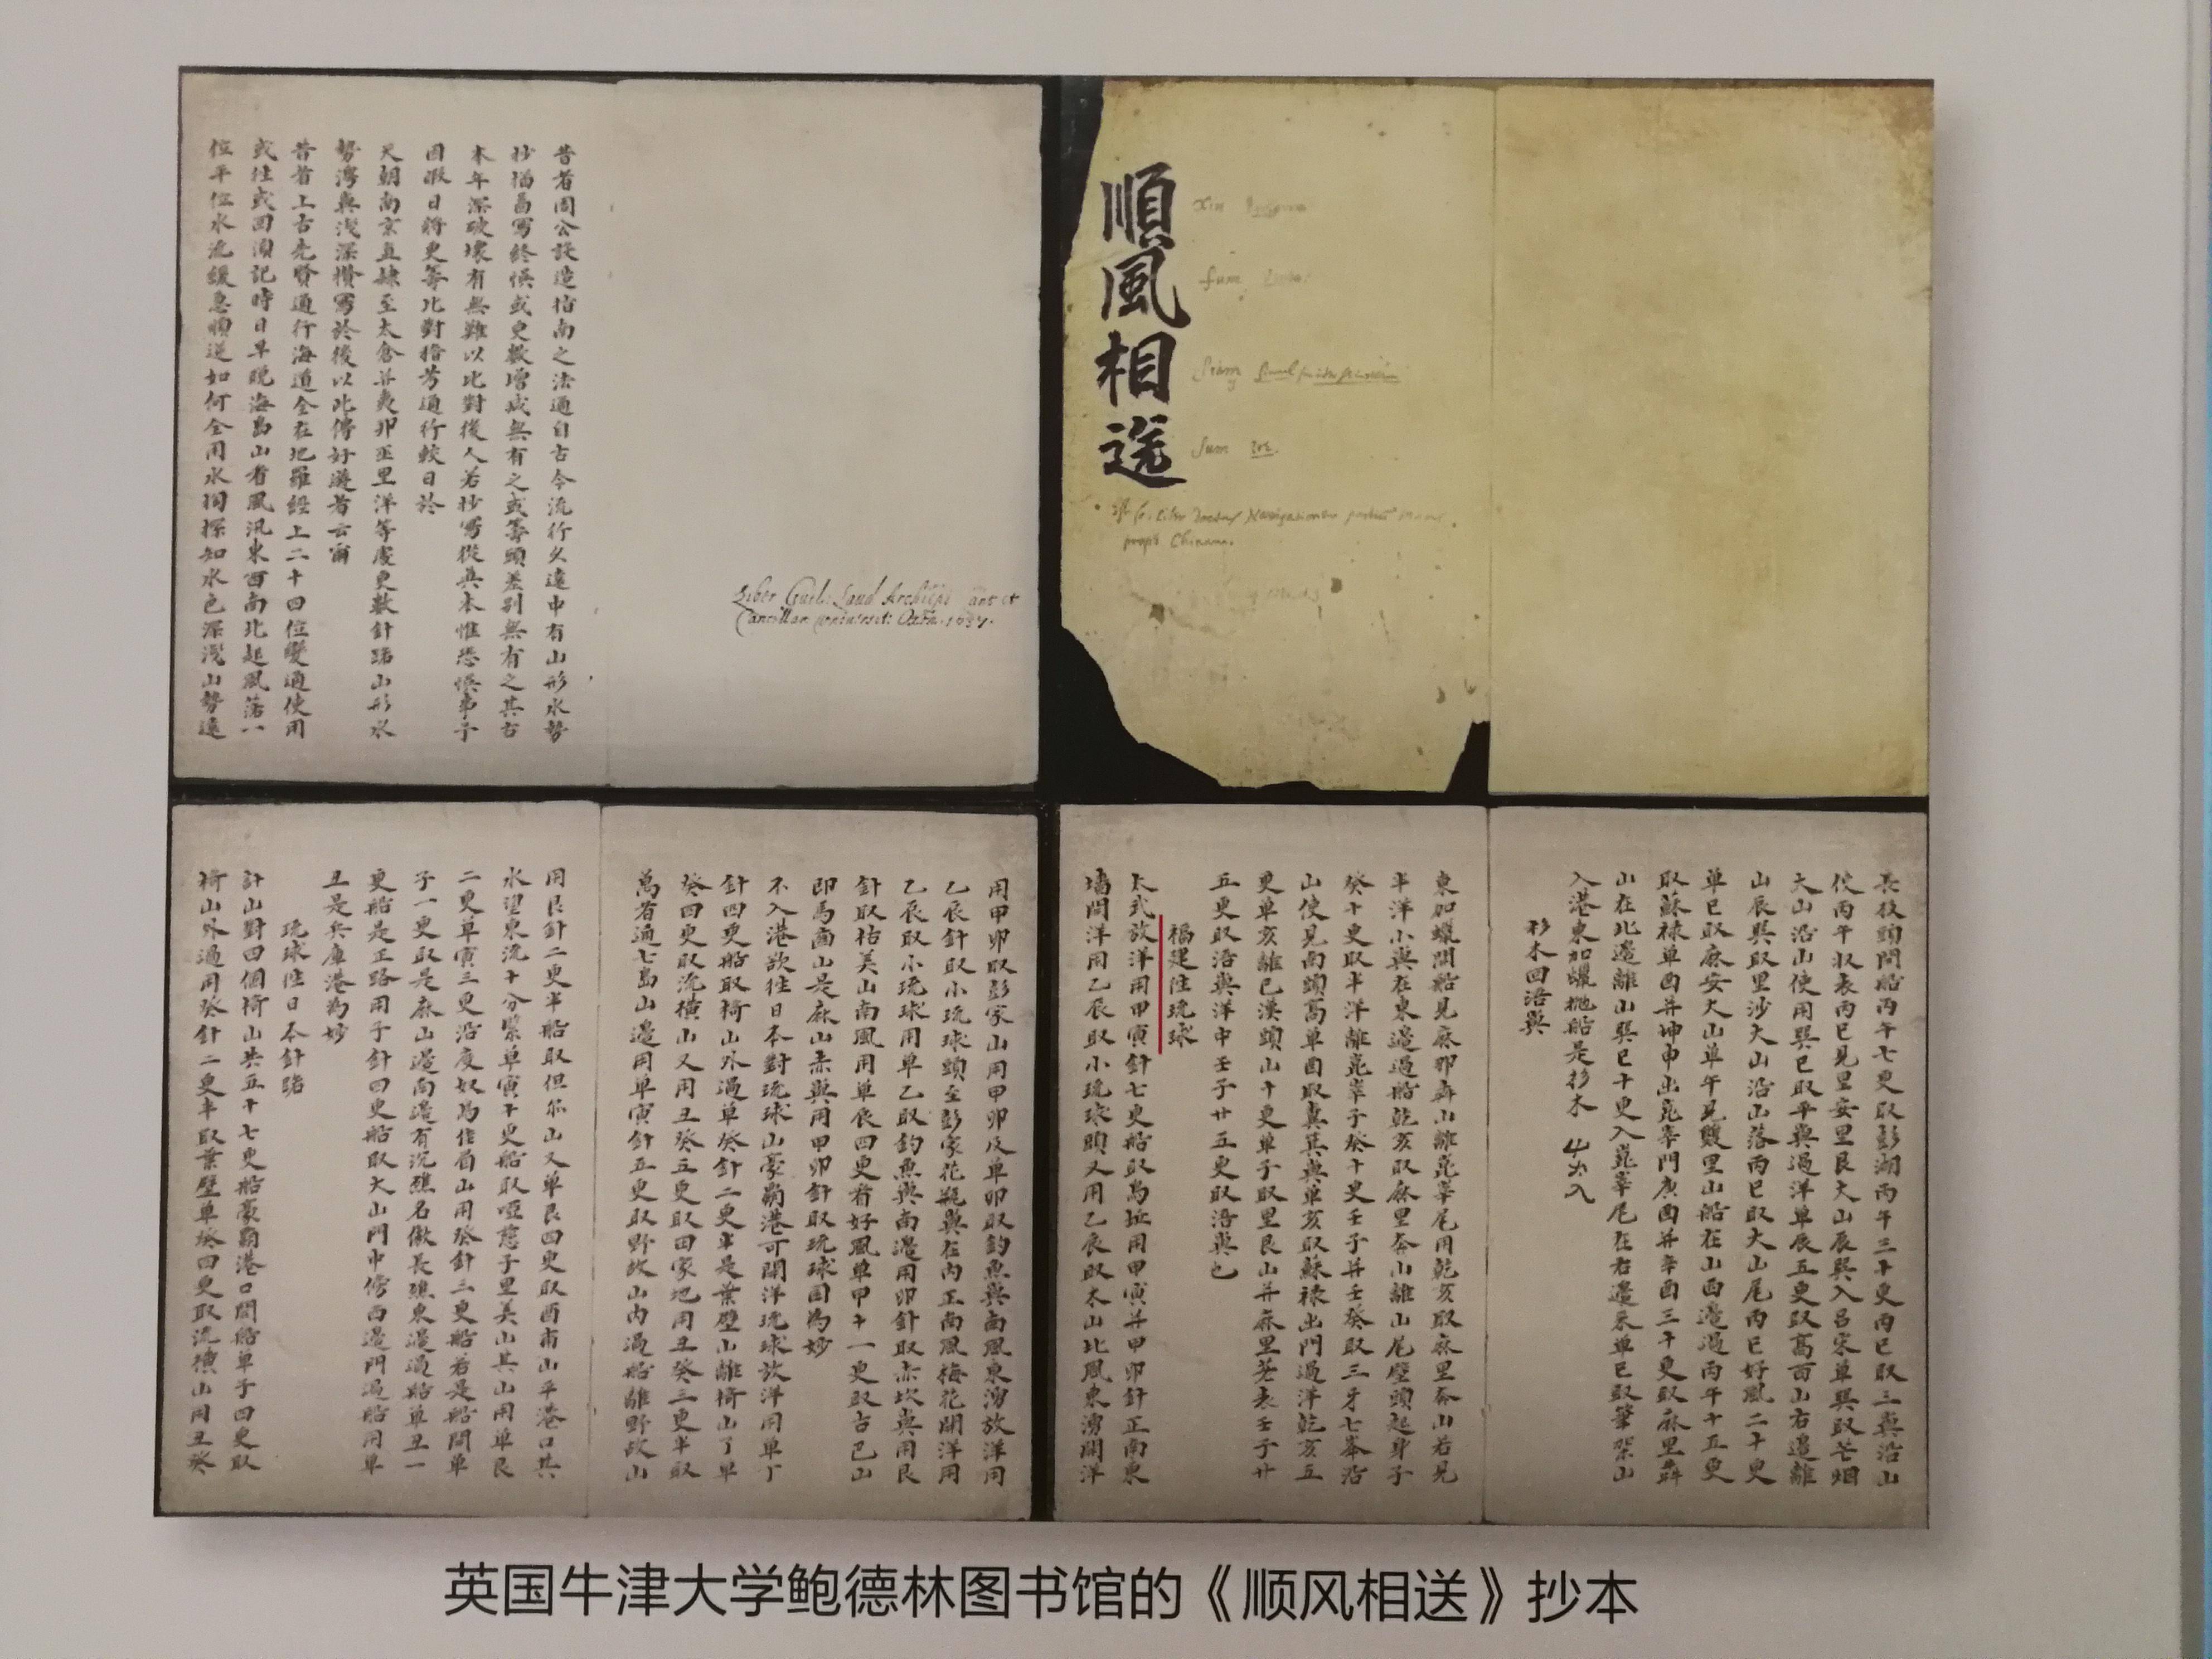 順風相送
昔者周公設造指南之法通自古今流行久遠中有山形水勢
抄描啚寫終悞或更數增减無有之或籌頭差別無有之其古
本年深破壞有無難以比對後人若抄寫從真本惟恐悞事予
因暇日將更籌比對稽考通行較日於
天朝南京直隸至太倉并夷邦巫里洋等處更數針路山形水
勢澳與淺深攢寫於後以此傳好遊者云爾
昔者上古先賢通行海道全在地羅經上二十四位變通使用
或往或回須記時日早晚海島山看風汛東西南北起風落一
位平位水流緩急順逆如何全用水掏探知水色深淺山勢遠
Liber Guil: Laud Archiepi Cant et
Cancellar. Universit: Oxon. 1637.
長枝頭開船丙午七更取彭湖丙午三十更丙巳取三嶼沿山
使丙午收表丙巳見里安里艮大山辰巽入呂宋單巽取芒烟
大山沿山使用巽巳取平與過洋單辰五更取高西山右邊離
山辰巽取里沙大山沿山落丙巳取大山尾丙巳好風二十更
單巳取麻安大山單午見雙里山船在山西邊過丙午十五更
取蘇祿單酉并坤申出崑峷門庚酉并辛酉三十更取麻里犇
山在北邊離山巽巳十更入崑峷尾在右邊來單巳取筆架山
入港東加蠟拋船是杉木 出入
杉木回浯嶼
東加蠟開船見麻那犇山離崑峷尾用乾亥取麻里奔山若見
半洋小與在東邊過船乾亥取麻里奔山離山尾壁頭起身子
癸十更取半洋離崑峷子癸十更壬子并壬癸取三牙七峯沿
山使見南頭高單酉取真其與單亥取蘇祿出門過洋乾亥五
更單亥離巳漢頭山十更單子取里艮山并麻里荖表壬子廿
五更取浯與洋中壬子廿五更取浯與也
福建往琉球
太武放洋用甲寅針七更船取烏坵用甲寅并甲卯針正南東
墻開洋用乙辰取小琉球頭又用乙辰取木山北風東湧開洋
用甲卯取彭家山用甲卯及單卯取釣魚與南風東湧放洋用
乙辰針取小琉球頭至彭家花瓶與在內正南風梅花開洋用
乙辰取小琉球用單乙取釣魚與南邊用卯針取赤坎與用艮
針取枯美山南風用單辰四更看好風單甲十一更取古巴山
即馬齒山是麻山赤與用甲卯針取琉球國為妙
不入港欲往日本對琉球山豪霸港可開洋琉球放洋用單丁
針四更船取椅山外過單癸針二更半是葉壁山離椅山了單
癸四更取流橫山又用丑癸五更取田家地用丑癸三更半取
萬者通七島山邊用單寅針五更取野故山內過船離野故山
用艮針二更半船取但尔山又單艮四更取酉甫山平港口其
水望東流十分緊單寅十更船取啞慈子里美山其山用單艮
二更單寅三更沿度奴為佳眉山用癸針三更船若是船開單
子一更取是麻山邊南邊有沉礁名做長礁東邊過船單丑一
更船是正路用子針四更船取大山門中傍西邊門過船用單
丑是兵庫港為妙
琉球往日本針路
計山對四個椅山共五十七更船豪霸港口開船單子四更取
椅山外過用癸針二更半取葉壁單癸四更取流橫山用丑癸
英国牛津大学鲍德林图书馆的《顺风相送》抄本